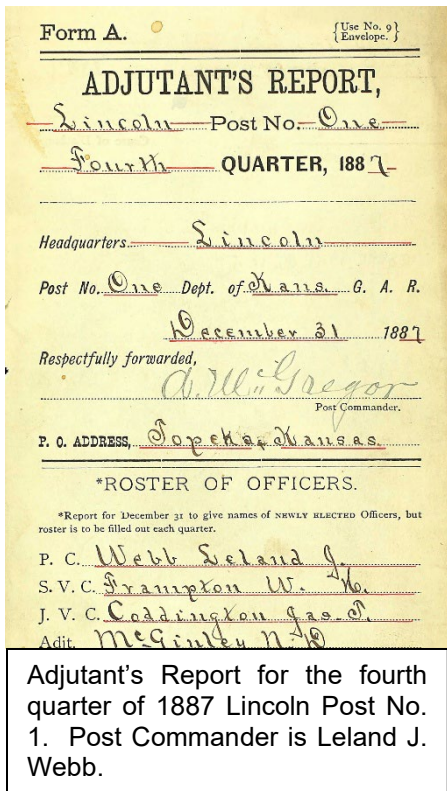 Form A.
{Use No. 9}
{Envelope.}
ADJUTANT'S REPORT,
Lincoln Post No. One
Fourth QUARTER, 1887
Headquarters Lincoln
Post No. One Dept. of Kans. G. A. R.
December 31 1887
Respectfully forwarded,
A. McGregor
Post Commander.
P. O. ADDRESS, Topeka, Kansas.
*ROSTER OF OFFICERS.
*Report for December 31 to give names of NEWLY ELECTED Officers, but
roster is to be filled out each quarter.
P. C. Webb Leland J.
S. V. C. Frampton W. H.
J. V. C. Coddington Jas. T.
Adjt. McGinley N. D
Adjutant's Report for the fourth
quarter of 1887 Lincoln Post No.
1. Post Commander is Leland J.
Webb.